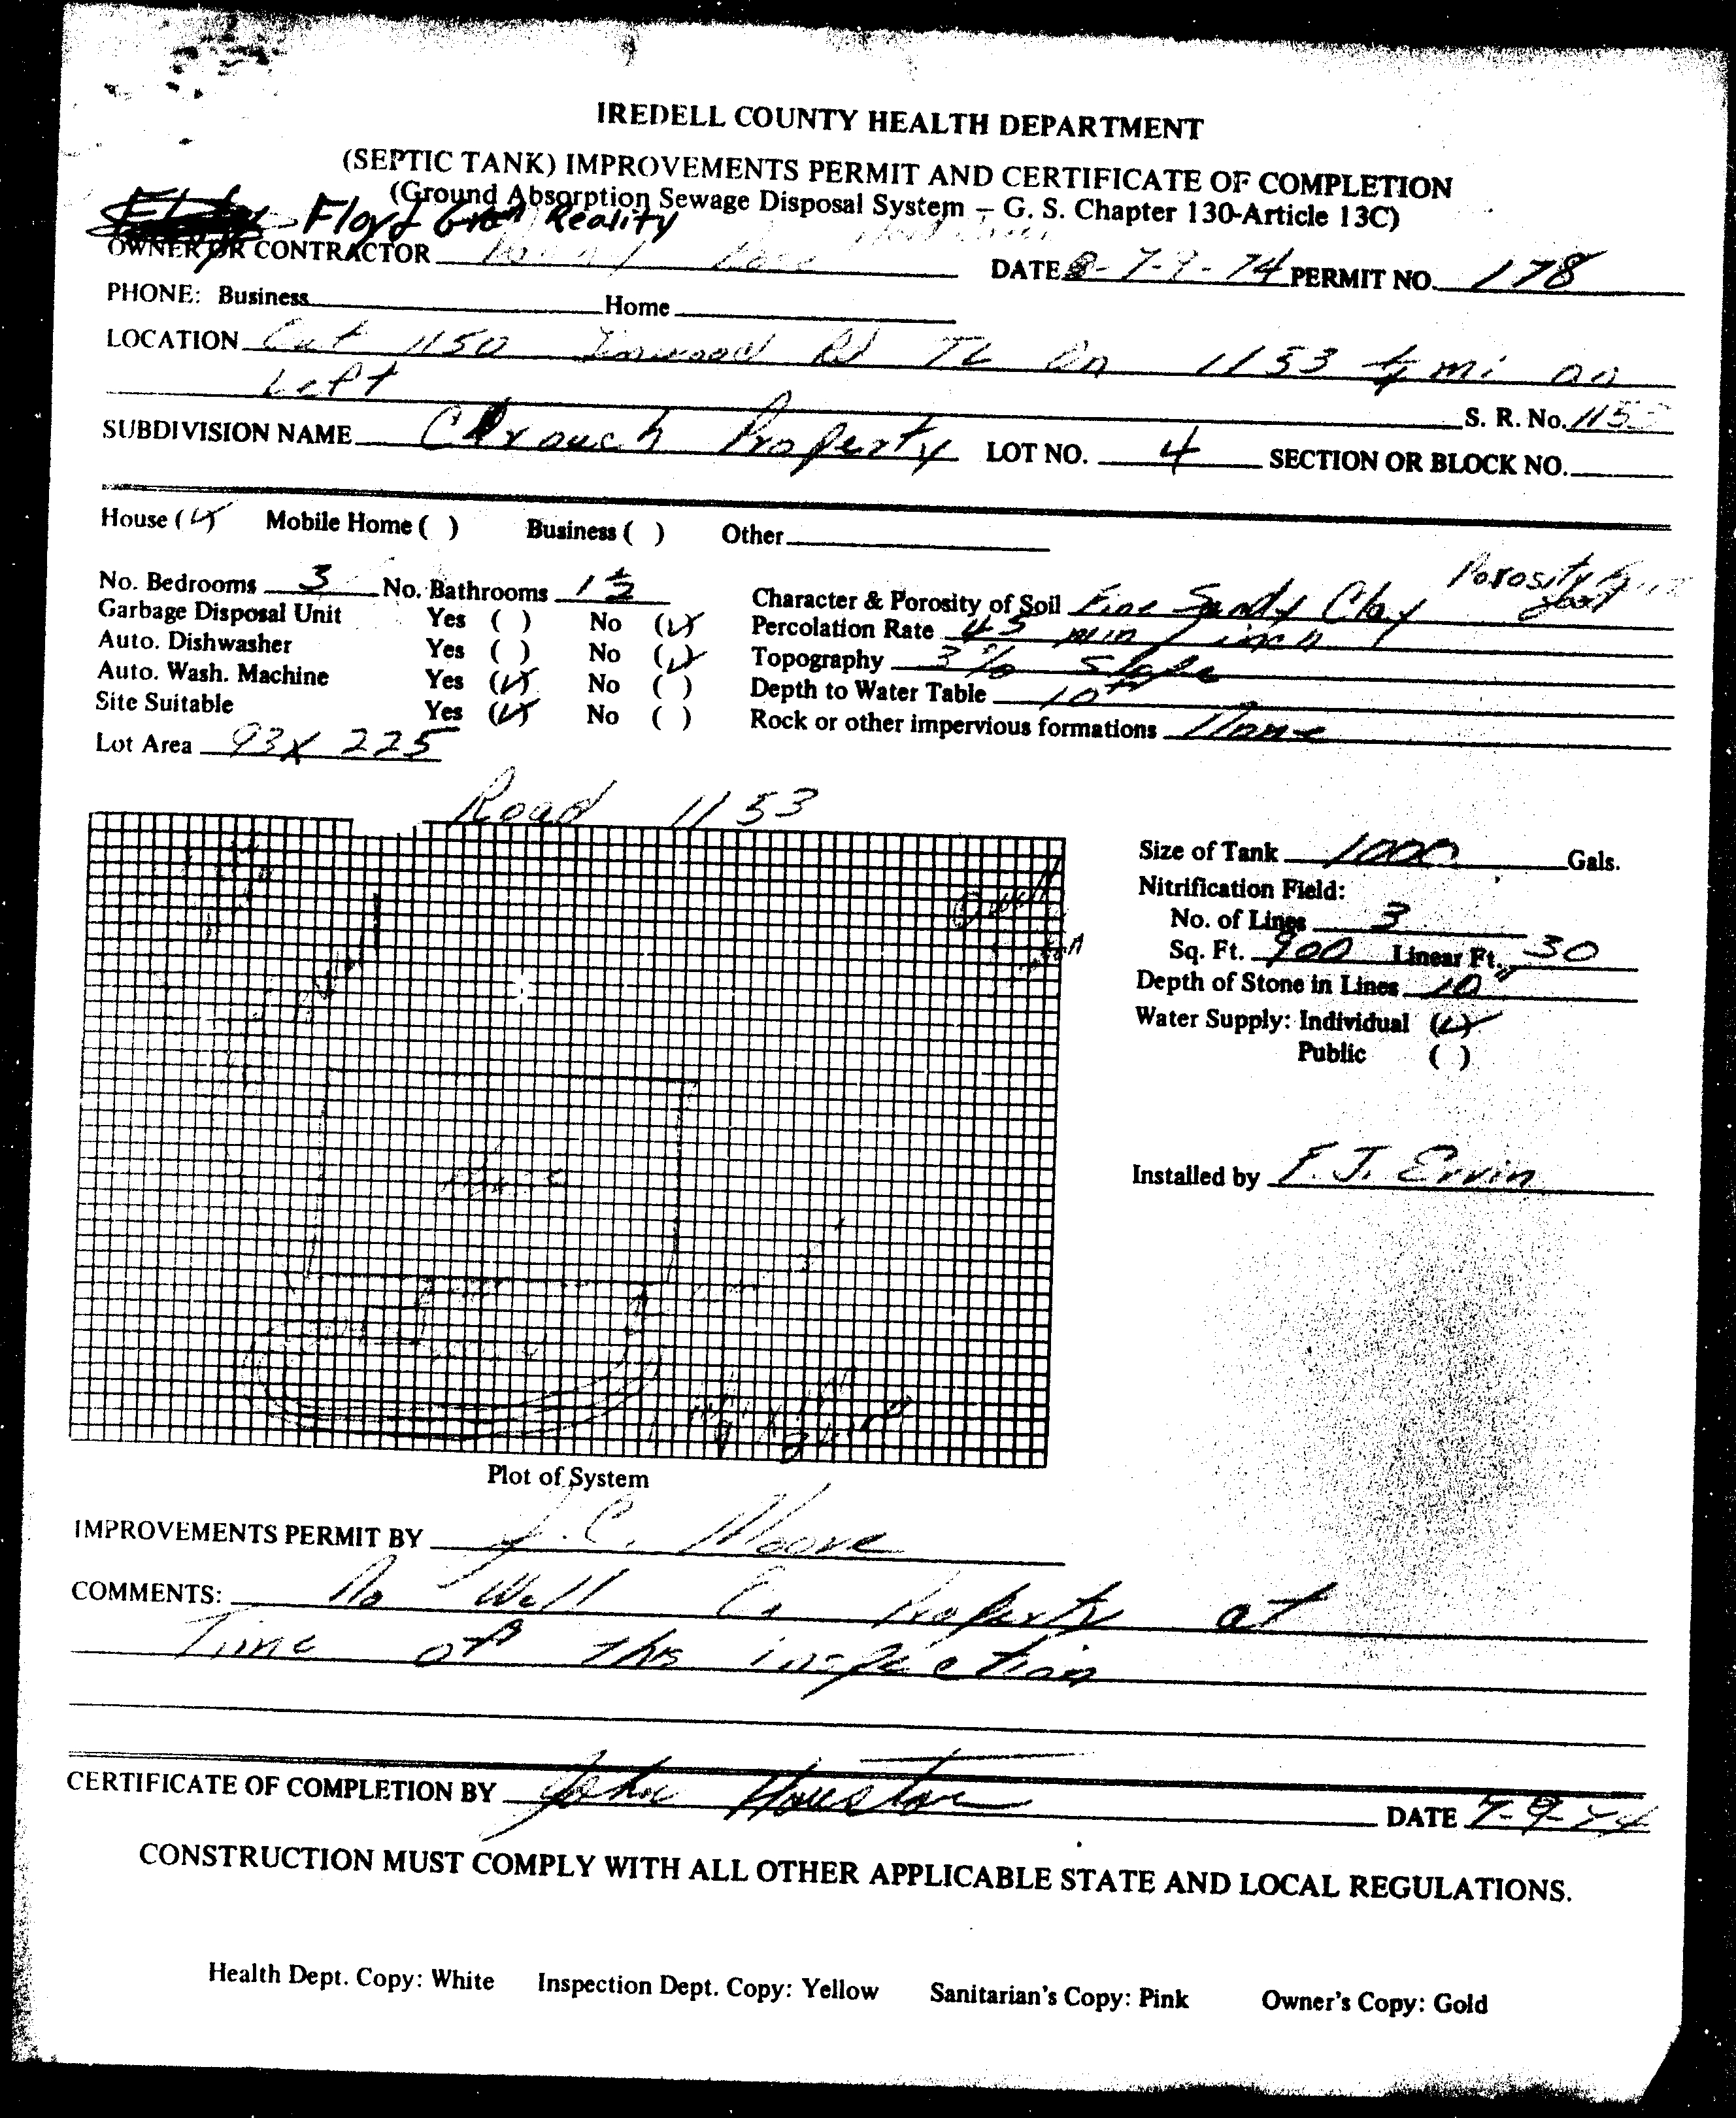 IREDELL COUNTY HEALTH DEPARTMENT
(SEPTIC TANK) IMPROVEMENTS PERMIT AND CERTIFICATE OF COMPLETION
(Ground Absorption Sewage Disposal System – G. S. Chapter 130-Article 13C)
Floyd Reality
OWNER OR CONTRACTOR DATE 7-9-74 PERMIT NO. 178
PHONE: Business Home
LOCATION 1150 Rd TL On 1153 mi on
Left
S. R. No. 115
SUBDIVISION NAME Crouch Property LOT NO. 4 SECTION OR BLOCK NO.
House (✓) Mobile Home ( ) Business ( ) Other
No. Bedrooms 3 No. Bathrooms 1 1/2
Garbage Disposal Unit Yes ( ) No (✓)
Auto. Dishwasher Yes ( ) No (✓)
Auto. Wash. Machine Yes (✓) No ( )
Site Suitable Yes (✓) No ( )
Lot Area 93 X 225
Porosity
Character & Porosity of Soil Fine Sandy Clay
Percolation Rate 45 min / inch
Topography 3% Slope
Depth to Water Table 10
Rock or other impervious formations None
Road 1153
well
House
Size of Tank 1000 Gals.
Nitrification Field:
No. of Lines 3
Sq. Ft. 900 Linear Ft. 30
Depth of Stone in Lines 10"
Water Supply: Individual (✓)
Public ( )
Installed by F. J. Ervin
Plot of System
IMPROVEMENTS PERMIT BY J. C. Moore
COMMENTS: No Well On Property at
Time of this inspection
CERTIFICATE OF COMPLETION BY John Houston DATE 7-9-74
CONSTRUCTION MUST COMPLY WITH ALL OTHER APPLICABLE STATE AND LOCAL REGULATIONS.
Health Dept. Copy: White Inspection Dept. Copy: Yellow Sanitarian's Copy: Pink Owner's Copy: Gold